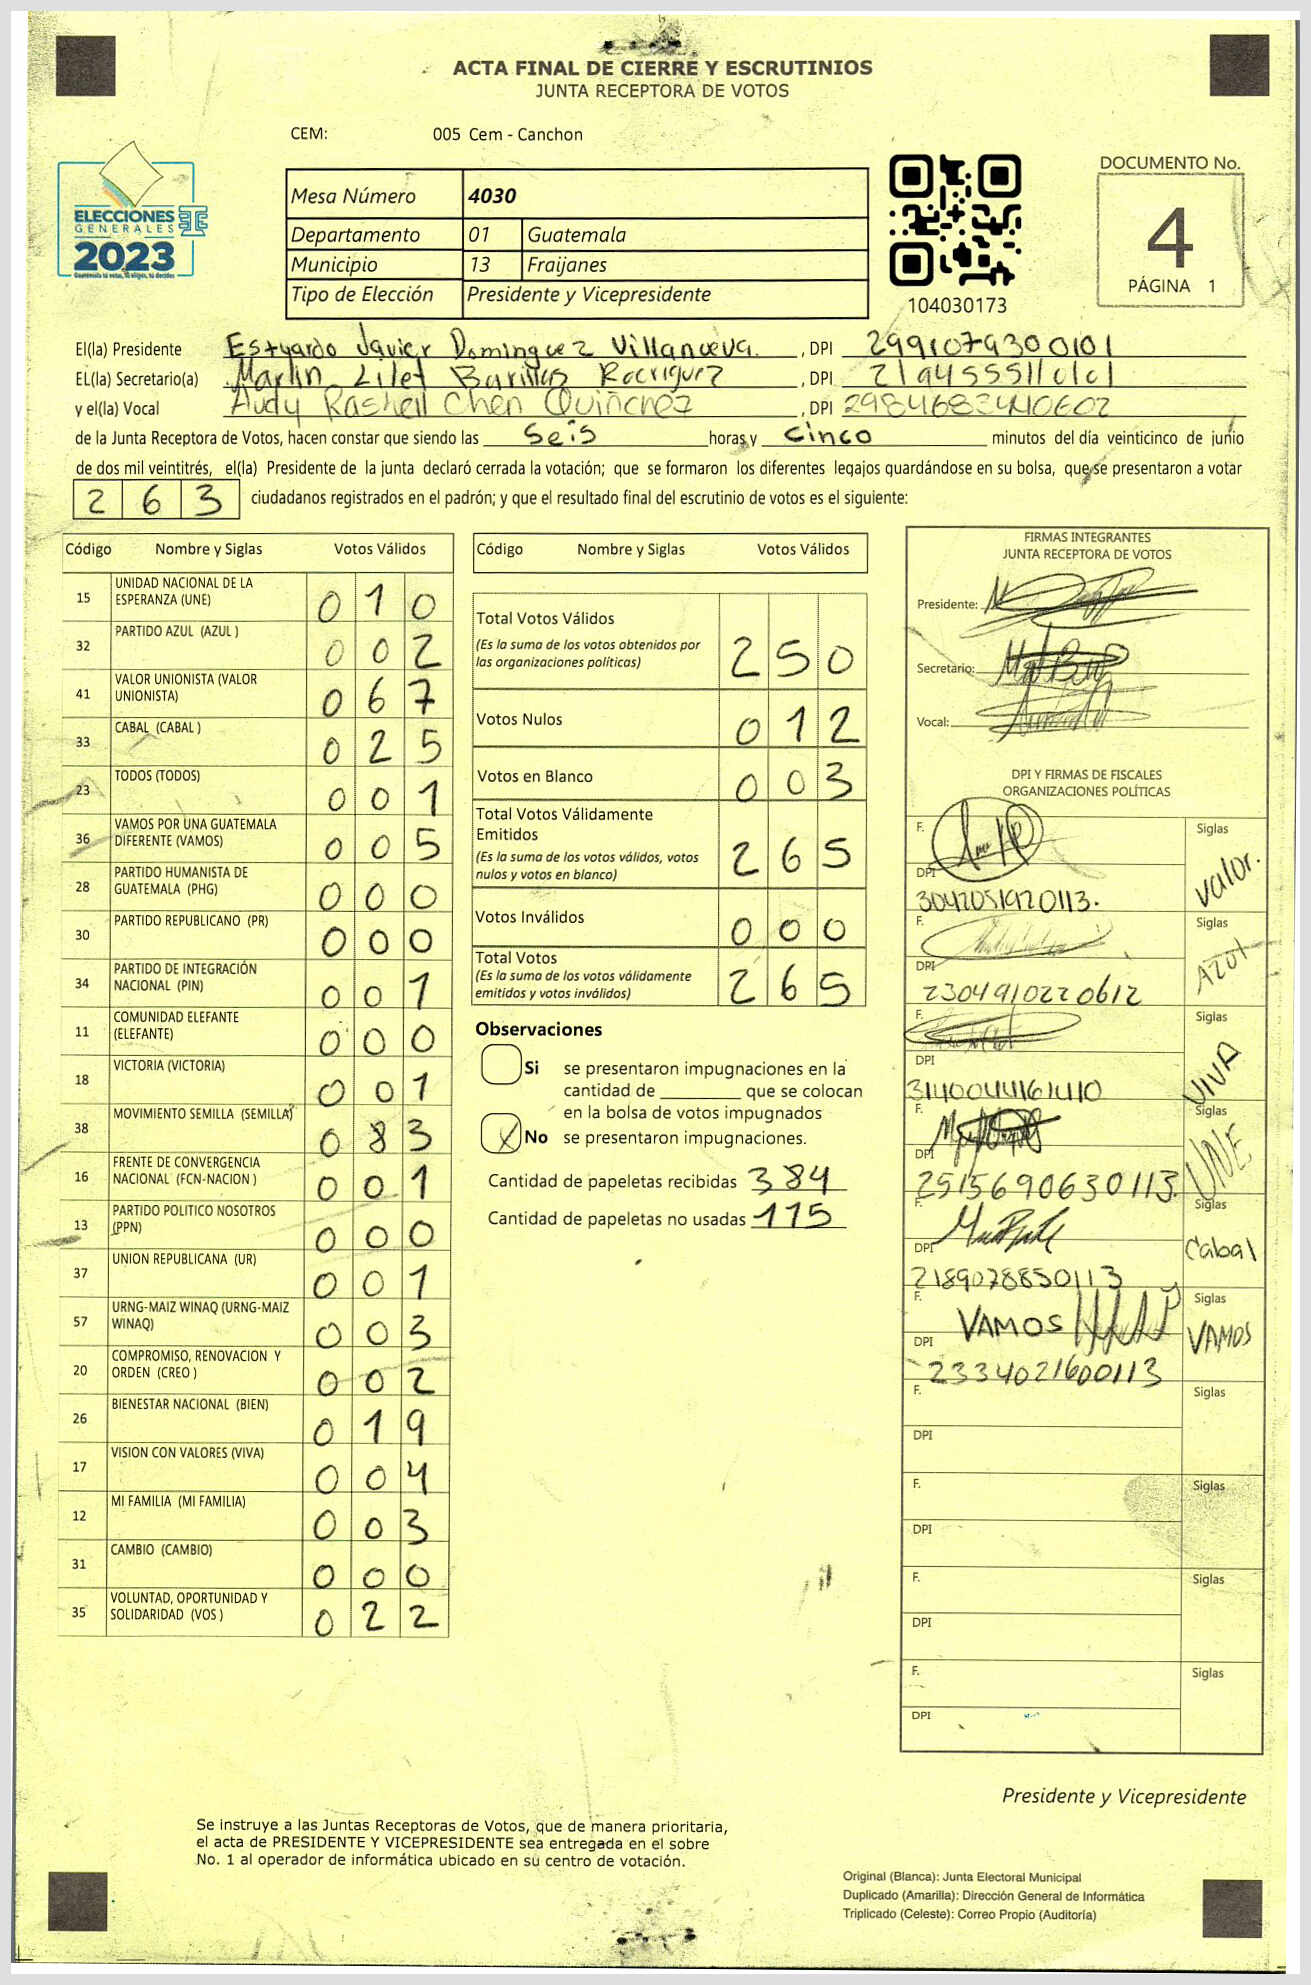 ACTA FINAL DE CIERRE Y ESCRUTINIOS
JUNTA RECEPTORA DE VOTOS
CEM: 005 Cem - Canchon
ELECCIONES
GENERALES
2023
Mesa Número 4030
Departamento 01 Guatemala
Municipio 13 Fraijanes
Tipo de Elección Presidente y Vicepresidente
104030173
DOCUMENTO No.
4
PÁGINA 1
El(la) Presidente Estuardo Javier Dominguez Villanueva. , DPI 2991079300101
EL(la) Secretario(a) Marlin Lilet Barillas Rodriguez , DPI 2194555110101
y el(la) Vocal Audy Rashell Chen Quiñonez , DPI 2984683440602
de la Junta Receptora de Votos, hacen constar que siendo las seis horas y cinco minutos del día veinticinco de junio
de dos mil veintitrés, el(la) Presidente de la junta declaró cerrada la votación; que se formaron los diferentes legajos guardándose en su bolsa, que se presentaron a votar
263 ciudadanos registrados en el padrón; y que el resultado final del escrutinio de votos es el siguiente:
Código Nombre y Siglas Votos Válidos
15 UNIDAD NACIONAL DE LA ESPERANZA (UNE) 010
32 PARTIDO AZUL (AZUL ) 002
41 VALOR UNIONISTA (VALOR UNIONISTA) 067
33 CABAL (CABAL ) 025
23 TODOS (TODOS) 001
36 VAMOS POR UNA GUATEMALA DIFERENTE (VAMOS) 005
28 PARTIDO HUMANISTA DE GUATEMALA (PHG) 000
30 PARTIDO REPUBLICANO (PR) 000
34 PARTIDO DE INTEGRACIÓN NACIONAL (PIN) 001
11 COMUNIDAD ELEFANTE (ELEFANTE) 000
18 VICTORIA (VICTORIA) 001
38 MOVIMIENTO SEMILLA (SEMILLA) 083
16 FRENTE DE CONVERGENCIA NACIONAL (FCN-NACION ) 001
13 PARTIDO POLITICO NOSOTROS (PPN) 000
37 UNION REPUBLICANA (UR) 001
57 URNG-MAIZ WINAQ (URNG-MAIZ WINAQ) 003
20 COMPROMISO, RENOVACION Y ORDEN (CREO ) 002
26 BIENESTAR NACIONAL (BIEN) 019
17 VISION CON VALORES (VIVA) 004
12 MI FAMILIA (MI FAMILIA) 003
31 CAMBIO (CAMBIO) 000
35 VOLUNTAD, OPORTUNIDAD Y SOLIDARIDAD (VOS ) 022
Código Nombre y Siglas Votos Válidos
Total Votos Válidos
(Es la suma de los votos obtenidos por
las organizaciones políticas) 250
Votos Nulos 012
Votos en Blanco 003
Total Votos Válidamente
Emitidos
(Es la suma de los votos válidos, votos
nulos y votos en blanco) 265
Votos Inválidos 000
Total Votos
(Es la suma de los votos válidamente
emitidos y votos inválidos) 265
Observaciones
Si se presentaron impugnaciones en la
cantidad de ________ que se colocan
en la bolsa de votos impugnados
X No se presentaron impugnaciones.
Cantidad de papeletas recibidas 384
Cantidad de papeletas no usadas 115
FIRMAS INTEGRANTES
JUNTA RECEPTORA DE VOTOS
Presidente:
Secretario:
Vocal:
DPI Y FIRMAS DE FISCALES
ORGANIZACIONES POLÍTICAS
F. Siglas
DPI Valor.
3042051920113.
F. Siglas
DPI AZUL
2304910220612
F. Siglas
DPI VIVA
3140044161410
F. Siglas
DPI UNE
2515690630113.
F. Siglas
DPI Cabal
2189078850113
F. VAMOS Siglas
DPI VAMOS
2334021600113
F. Siglas
DPI
F. Siglas
DPI
F. Siglas
DPI
F. Siglas
DPI
Presidente y Vicepresidente
Se instruye a las Juntas Receptoras de Votos, que de manera prioritaria,
el acta de PRESIDENTE Y VICEPRESIDENTE sea entregada en el sobre
No. 1 al operador de informática ubicado en su centro de votación.
Original (Blanca): Junta Electoral Municipal
Duplicado (Amarilla): Dirección General de Informática
Triplicado (Celeste): Correo Propio (Auditoría)